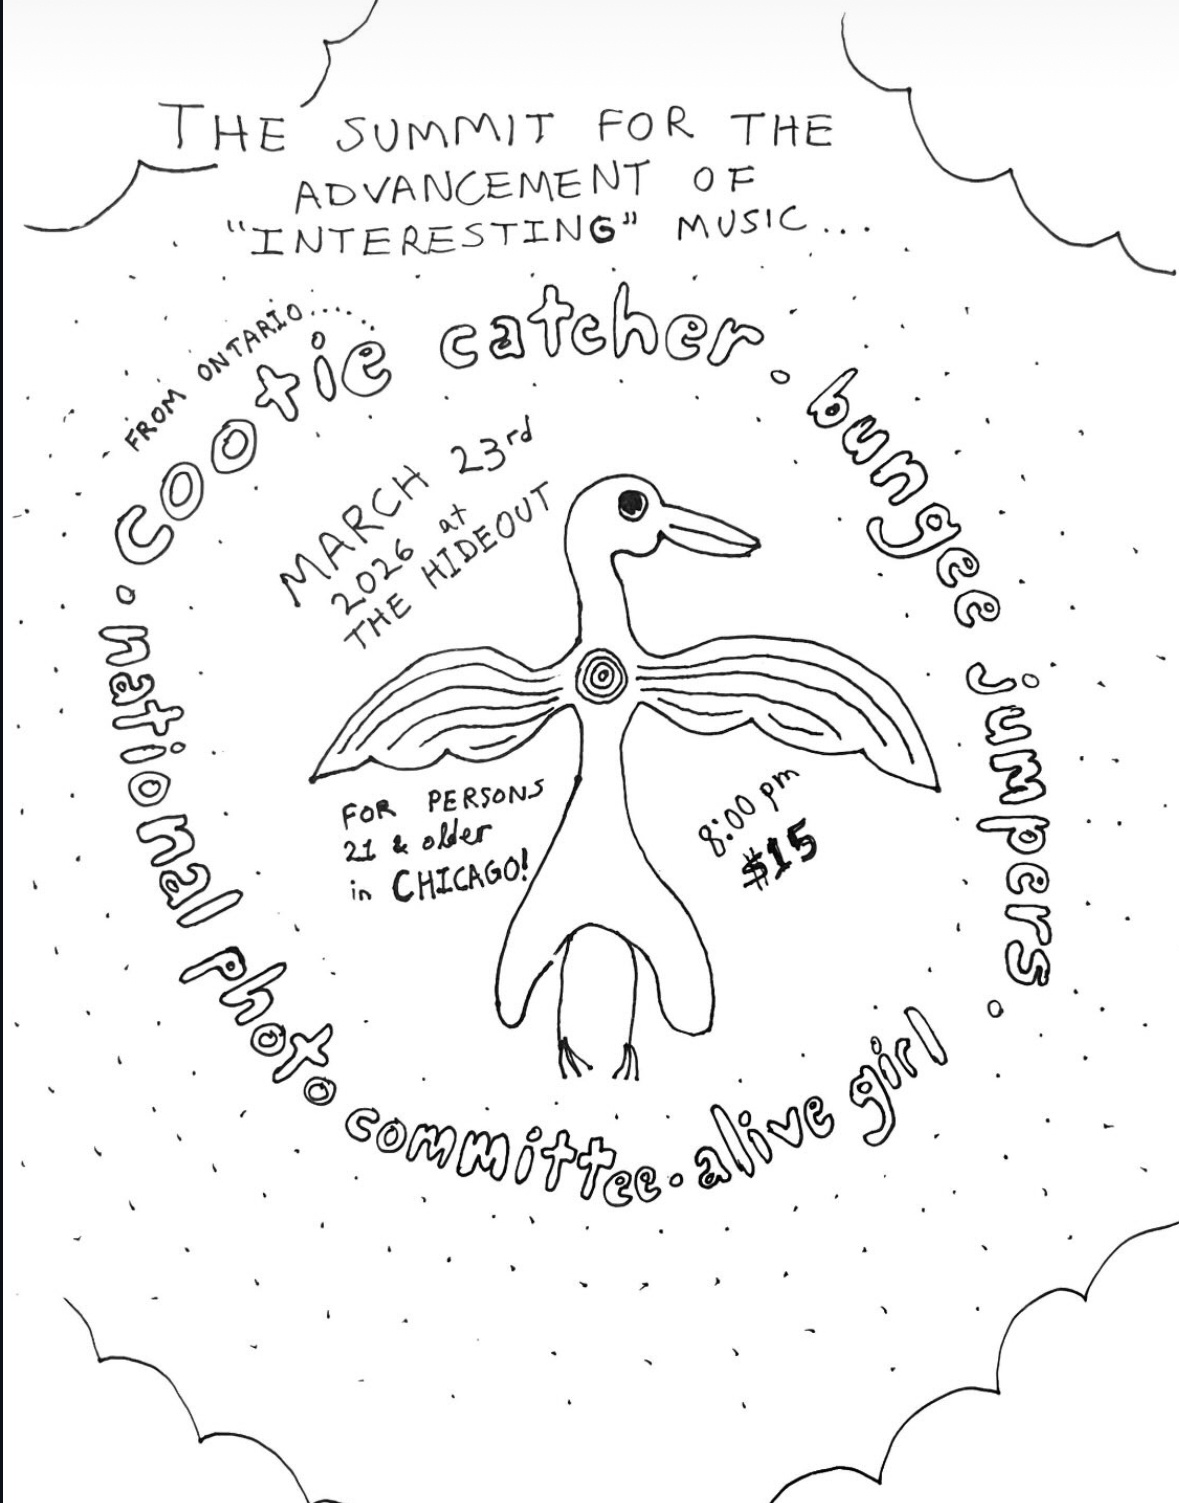 THE SUMMIT FOR THE
ADVANCEMENT OF
"INTERESTING" MUSIC...
FROM ONTARIO.....
cootie catcher. bungee jumpers. alive girl. national photo committee.
MARCH 23rd
2026 at
THE HIDEOUT
FOR PERSONS
21 & older
in CHICAGO!
8:00 pm
$15